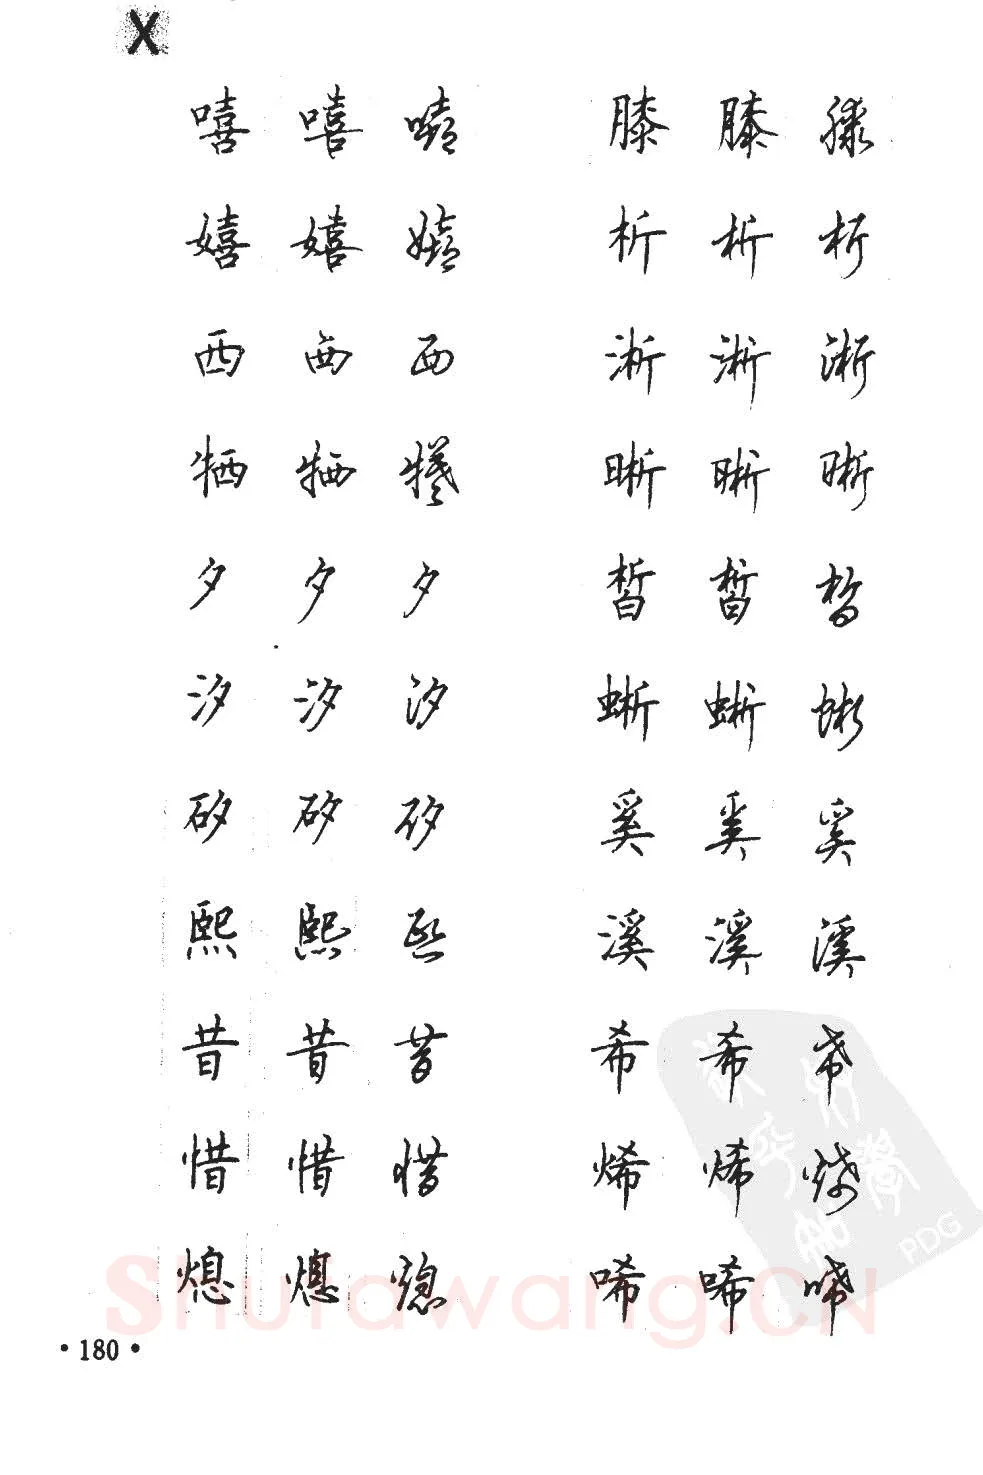 X
嘻 嘻 嘻 膝 膝 膝
嬉 嬉 嬉 析 析 析
西 西 西 淅 淅 淅
牺 牺 犧 晰 晰 晰
夕 夕 夕 皙 皙 皙
汐 汐 汐 蜥 蜥 蜥
矽 矽 矽 奚 奚 奚
熙 熙 熙 溪 溪 溪
昔 昔 昔 希 希 希
惜 惜 惜 烯 烯 烯
熄 熄 熄 唏 唏 唏
Shufawang.CN
PDG
·180·